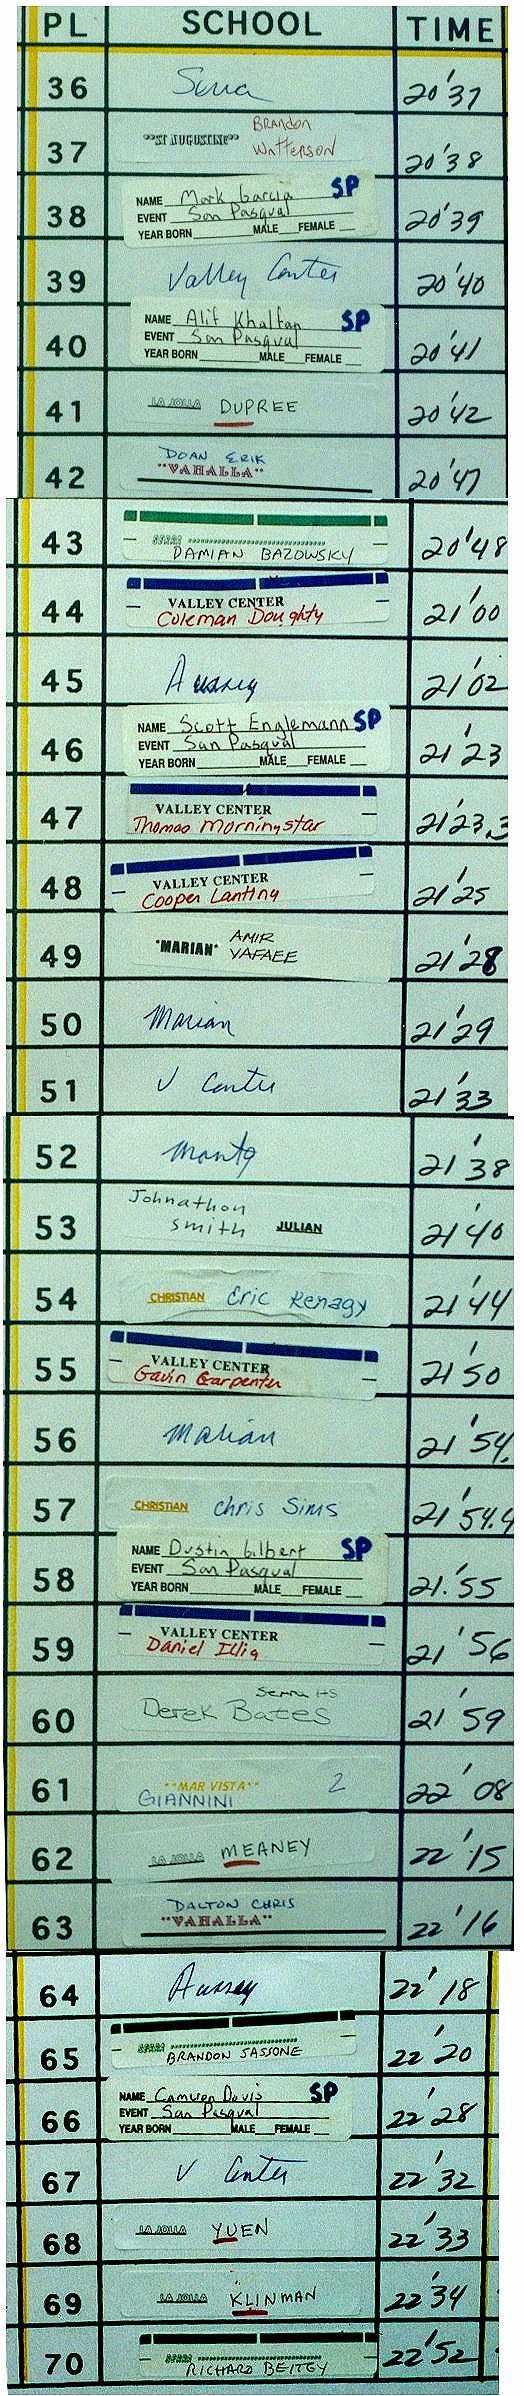 PL SCHOOL TIME
36 Serra 20'37
37 "ST AUGUSTINE" BRANDON WATTERSON 20'38
NAME Mark Garcia SP
38 EVENT San Pasqual 20'39
YEAR BORN MALE FEMALE
39 Valley Center 20'40
NAME Alif Khalfan SP
40 EVENT San Pasqual 20'41
YEAR BORN MALE FEMALE
41 LA JOLLA DUPREE 20'42
DOAN ERIK
42 "VAHALLA" 20'47
43 SERRA 20'48
DAMIAN BAZOWSKY
VALLEY CENTER
44 Coleman Doughty 21'00
45 21'02
NAME Scott Englemann SP
46 EVENT San Pasqual 21'23
YEAR BORN MALE FEMALE
VALLEY CENTER
47 Thomas Morningstar 21'23.3
VALLEY CENTER
48 Cooper Lantiny 21'25
AMIR
49 "MARIAN" YAFAEE 21'28
50 Marian 21'29
51 V Center 21'33
52 Montg 21'38
Johnathon
53 Smith JULIAN 21'40
54 CHRISTIAN Eric Renagy 21'44
VALLEY CENTER
55 Gavin Carpenter 21'50
56 Marian 21'54.
57 CHRISTIAN Chris Sims 21'54.4
NAME Dustin Gilbert SP
58 EVENT San Pasqual 21'55
YEAR BORN MALE FEMALE
VALLEY CENTER
59 Daniel Illig 21'56
Serra HS
60 Derek Bates 21'59
"MAR VISTA" 2
61 GIANNINI 22'08
62 LA JOLLA MEANEY 22'15
DALTON CHRIS
63 "VAHALLA" 22'16
64 22'18
SERRA
65 BRANDON SASSONE 22'20
NAME Camuron Davis SP
66 EVENT San Pasqual 22'28
YEAR BORN MALE FEMALE
67 V Center 22'32
68 LA JOLLA YUEN 22'33
69 LA JOLLA KLINMAN 22'34
70 SERRA 22'52
RICHARD BEITEY